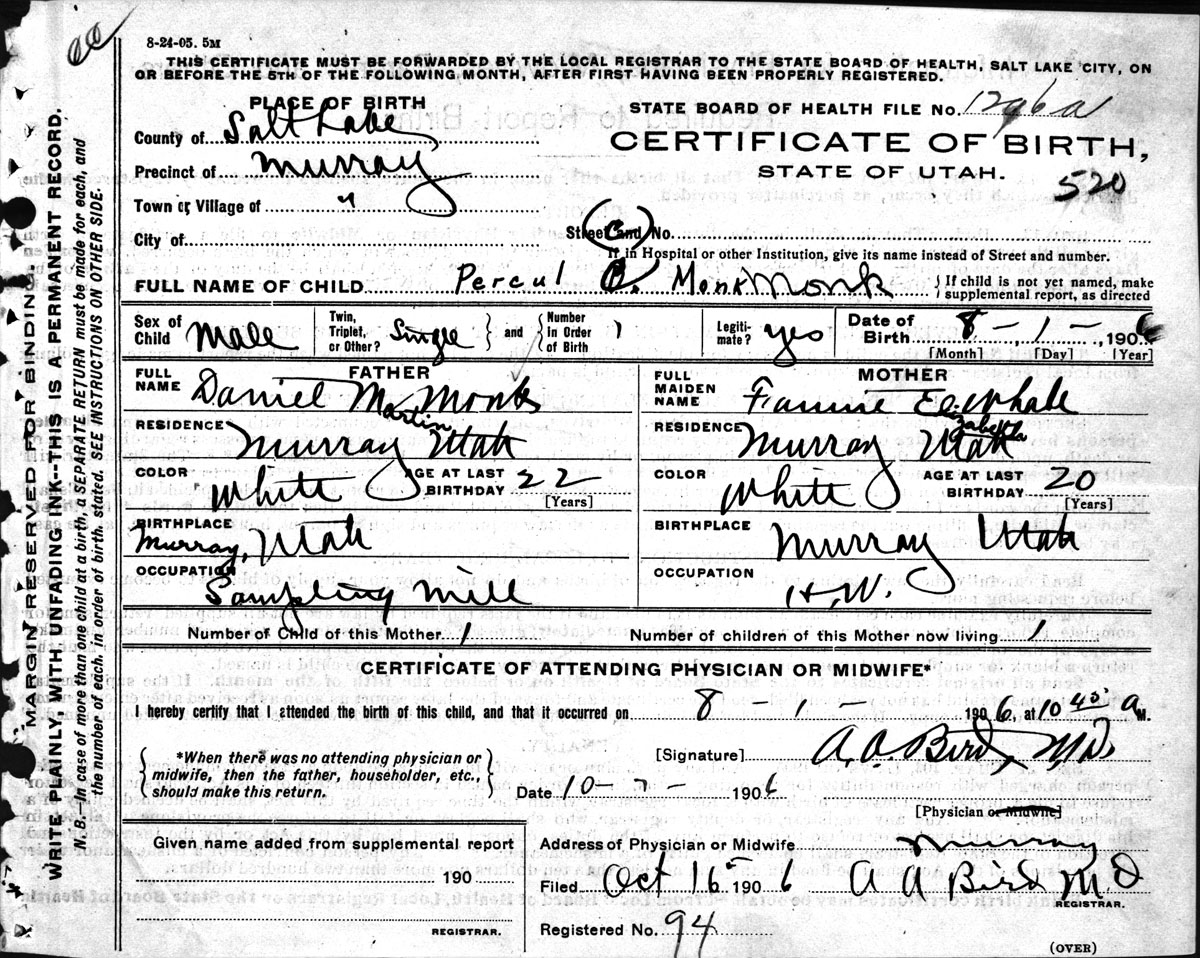 8-24-05. 5M
THIS CERTIFICATE MUST BE FORWARDED BY THE LOCAL REGISTRAR TO THE STATE BOARD OF HEALTH, SALT LAKE CITY, ON
OR BEFORE THE 5TH OF THE FOLLOWING MONTH, AFTER FIRST HAVING BEEN PROPERLY REGISTERED.
MARGIN RESERVED FOR BINDING
WRITE PLAINLY, WITH UNFADING INK--THIS IS A PERMANENT RECORD.
N.B.--In case of more than one child at a birth, a SEPARATE RETURN must be made for each, and
the number of each, in order of birth, stated. SEE INSTRUCTIONS ON OTHER SIDE.
PLACE OF BIRTH
County of Salt Lake
Precinct of Murray
Town or Village of "
City of
STATE BOARD OF HEALTH FILE No. 1296a
CERTIFICATE OF BIRTH,
STATE OF UTAH.
520
Street and No.
(C)
If in Hospital or other Institution, give its name instead of Street and number.
FULL NAME OF CHILD Percul Monk Monk
If child is not yet named, make
supplemental report, as directed
Sex of Child Male
Twin, Triplet, or Other? Single
and Number In Order of Birth 1
Legitimate? yes
Date of Birth 8 - 1 -, 1906
[Month] [Day] [Year]
FATHER
FULL NAME Daniel Martin Monk
RESIDENCE Murray Utah
COLOR White AGE AT LAST BIRTHDAY 22
[Years]
BIRTHPLACE
Murray, Utah
OCCUPATION
Sampling Mill
MOTHER
FULL MAIDEN NAME Fannie Elizabeth Whale
RESIDENCE Murray Utah
COLOR White AGE AT LAST BIRTHDAY 20
[Years]
BIRTHPLACE
Murray Utah
OCCUPATION
H.W.
Number of Child of this Mother 1 Number of children of this Mother now living 1
CERTIFICATE OF ATTENDING PHYSICIAN OR MIDWIFE*
I hereby certify that I attended the birth of this child, and that it occurred on 8 - 1 - 1906, at 10 45 a M.
*When there was no attending physician or
midwife, then the father, householder, etc.,
should make this return.
[Signature] A. A. Bird, MD
Date 10 - 7 - 1906
[Physician or Midwife]
Given name added from supplemental report
190
REGISTRAR.
Address of Physician or Midwife Murray
Filed Oct 16 1906 A A Bird M.D
REGISTRAR.
Registered No. 94
(OVER)